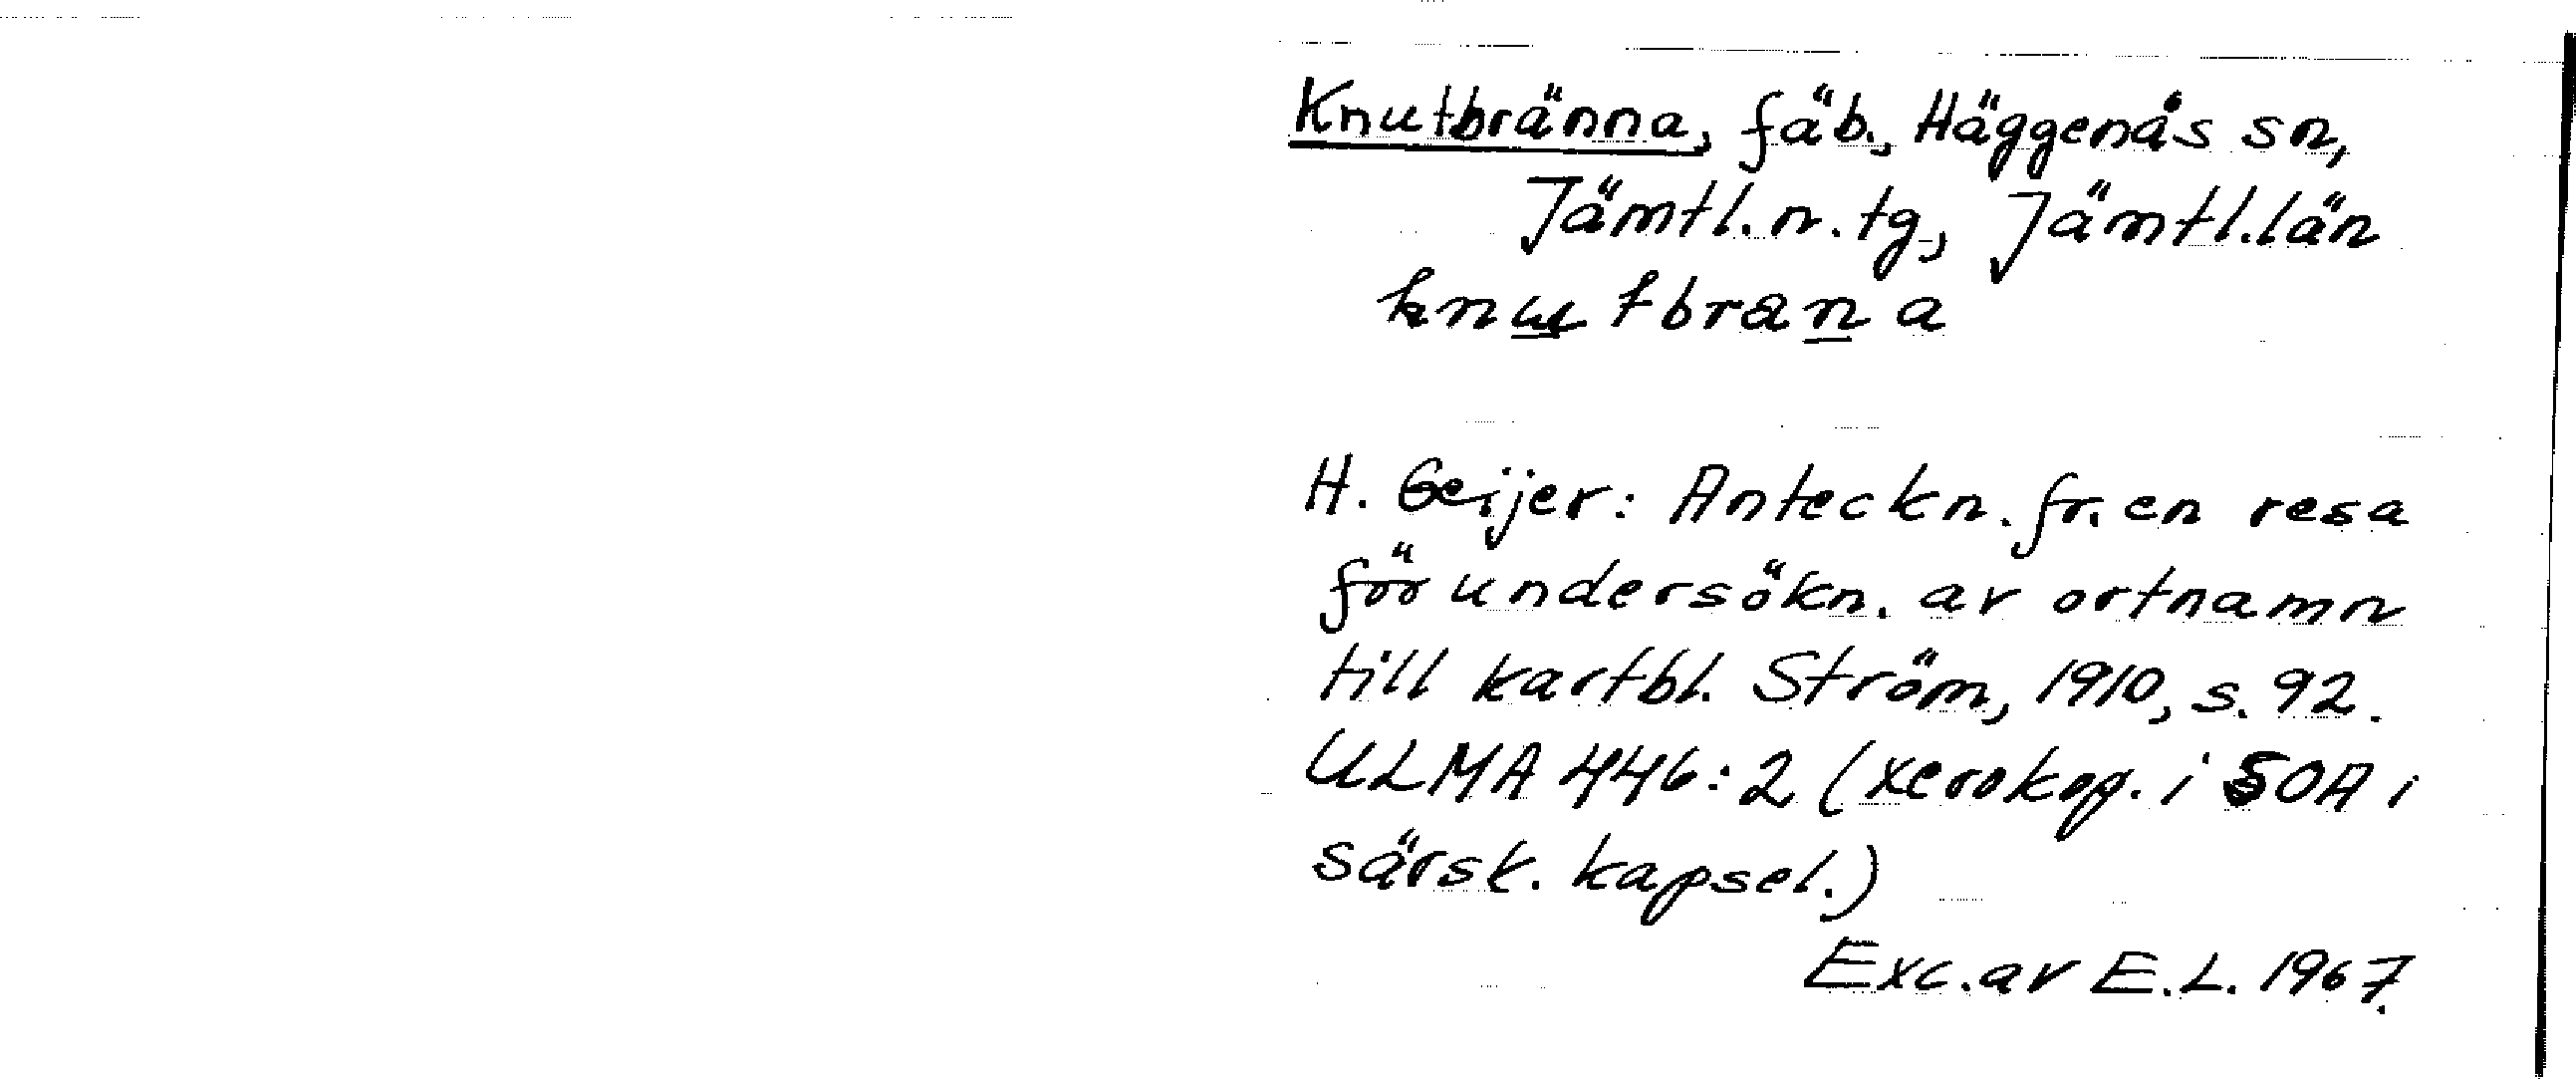 Knutbränna, fäb., Häggenås sn,
Jämtl. n. tg, Jämtl. län
knutbrana
H. Geijer: Anteckn. fr. en resa
för undersökn. av ortnamn
till kartbl. Ström, 1910, s. 92.
ULMA 446:2 (xerokop. i SOA i
särsk. kapsel.)
Exc. av E.L. 1967.